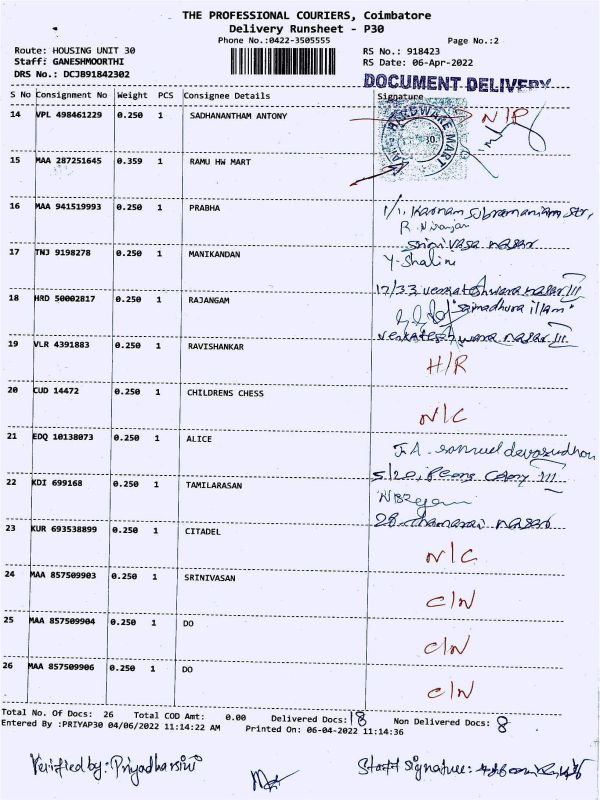 THE PROFESSIONAL COURIERS, Coimbatore
Delivery Runsheet - P30
Phone No.:0422-3505555
Page No.:2
Route: HOUSING UNIT 30
RS No.: 918423
Staff: GANESHMOORTHI
RS Date: 06-Apr-2022
DRS No.: DCJB91842302
DOCUMENT DELIVERY
S No Consignment No Weight PCS Consignee Details Signature
14 VPL 498461229 0.250 1 SADHANANTHAM ANTONY N/P
HARDWARE MART
15 MAA 287251645 0.359 1 RAMU HW MART
16 MAA 941519993 0.250 1 PRABHA
1/1, Karnam subramaniam str,
R. Niranjan
srinivasa nagar
17 TNJ 9198278 0.250 1 MANIKANDAN
Y. Shalini
12/33 venkateshwara nagar III
18 HRD 50002817 0.250 1 RAJANGAM
"samadhura illam"
venkateshwara nagar III
19 VLR 4391883 0.250 1 RAVISHANKAR
H/R
20 CUD 14472 0.250 1 CHILDRENS CHESS
N/C
21 EDQ 10138073 0.250 1 ALICE
J.A. samuel
5/20, III
22 KDI 699168 0.250 1 TAMILARASAN
28 nagar
23 KUR 693538899 0.250 1 CITADEL
N/C
24 MAA 857509903 0.250 1 SRINIVASAN
C/N
25 MAA 857509904 0.250 1 DO
C/N
26 MAA 857509906 0.250 1 DO
C/N
Total No. Of Docs: 26 Total COD Amt: 0.00 Delivered Docs: 18 Non Delivered Docs: 8
Entered By :PRIYAP30 04/06/2022 11:14:22 AM Printed On: 06-04-2022 11:14:36
Verified by: Priyadharsini
Staff Signature: